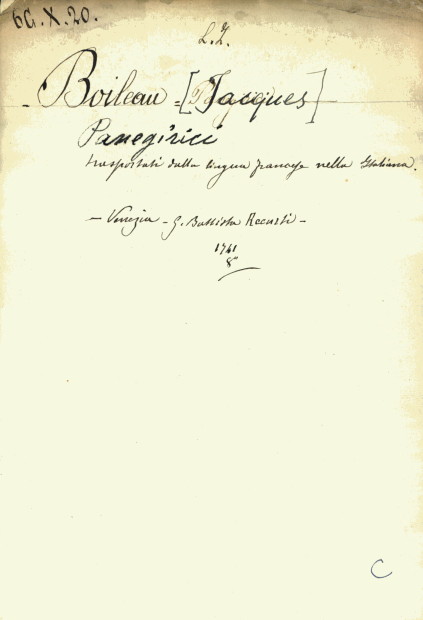 6G.X.20.
L.Z.
Boileau = [Jacques]
Panegirici
trasportati dalla lingua francese nella Italiana.
– Venezia – G. Battista Recurti –
1741
8°
C